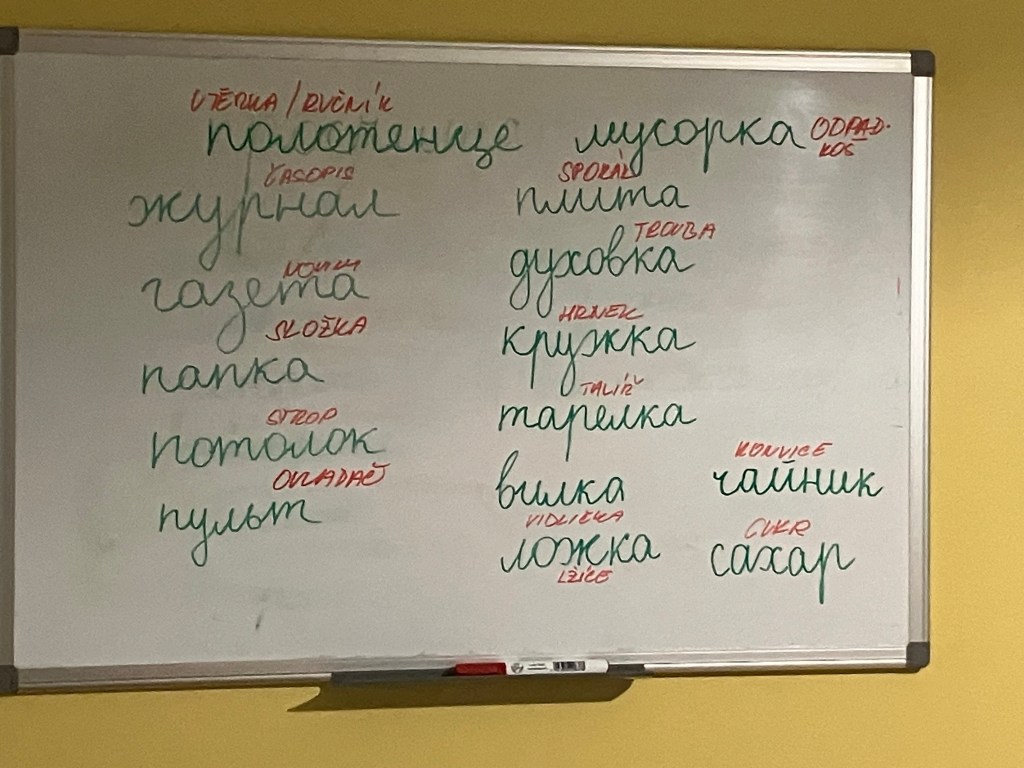 UTĚRKA / RUČNÍK
полотенце
мусорка
ODPAD.
KOŠ
ČASOPIS
журнал
NOVINY
газета
SLOŽKA
папка
STROP
потолок
OVLADAČ
пульт
SPORÁK
плита
TROUBA
духовка
HRNEK
кружка
TALÍŘ
тарелка
вилка
VIDLIČKA
ложка
LŽÍCE
KONVICE
чайник
CUKR
сахар